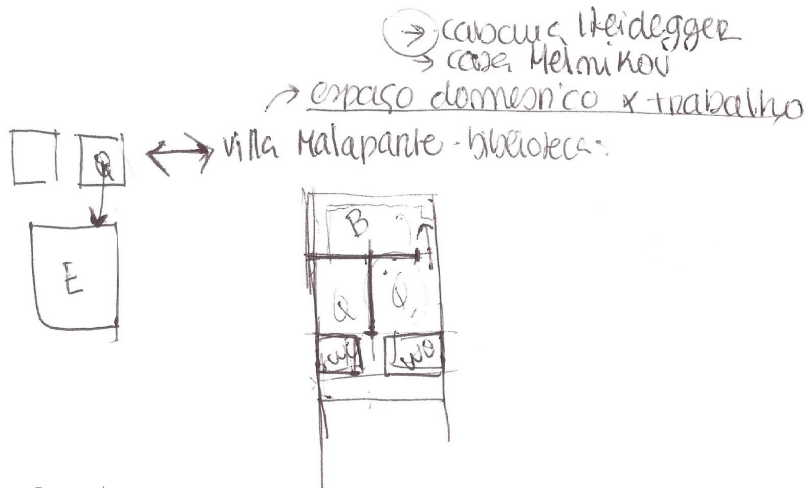 → cabana Heidegger
→ casa Melnikov
→ espaço domesnico x trabalho
Q ↔ villa Malaparte - biblioteca
E
B
Q Q
wc wc